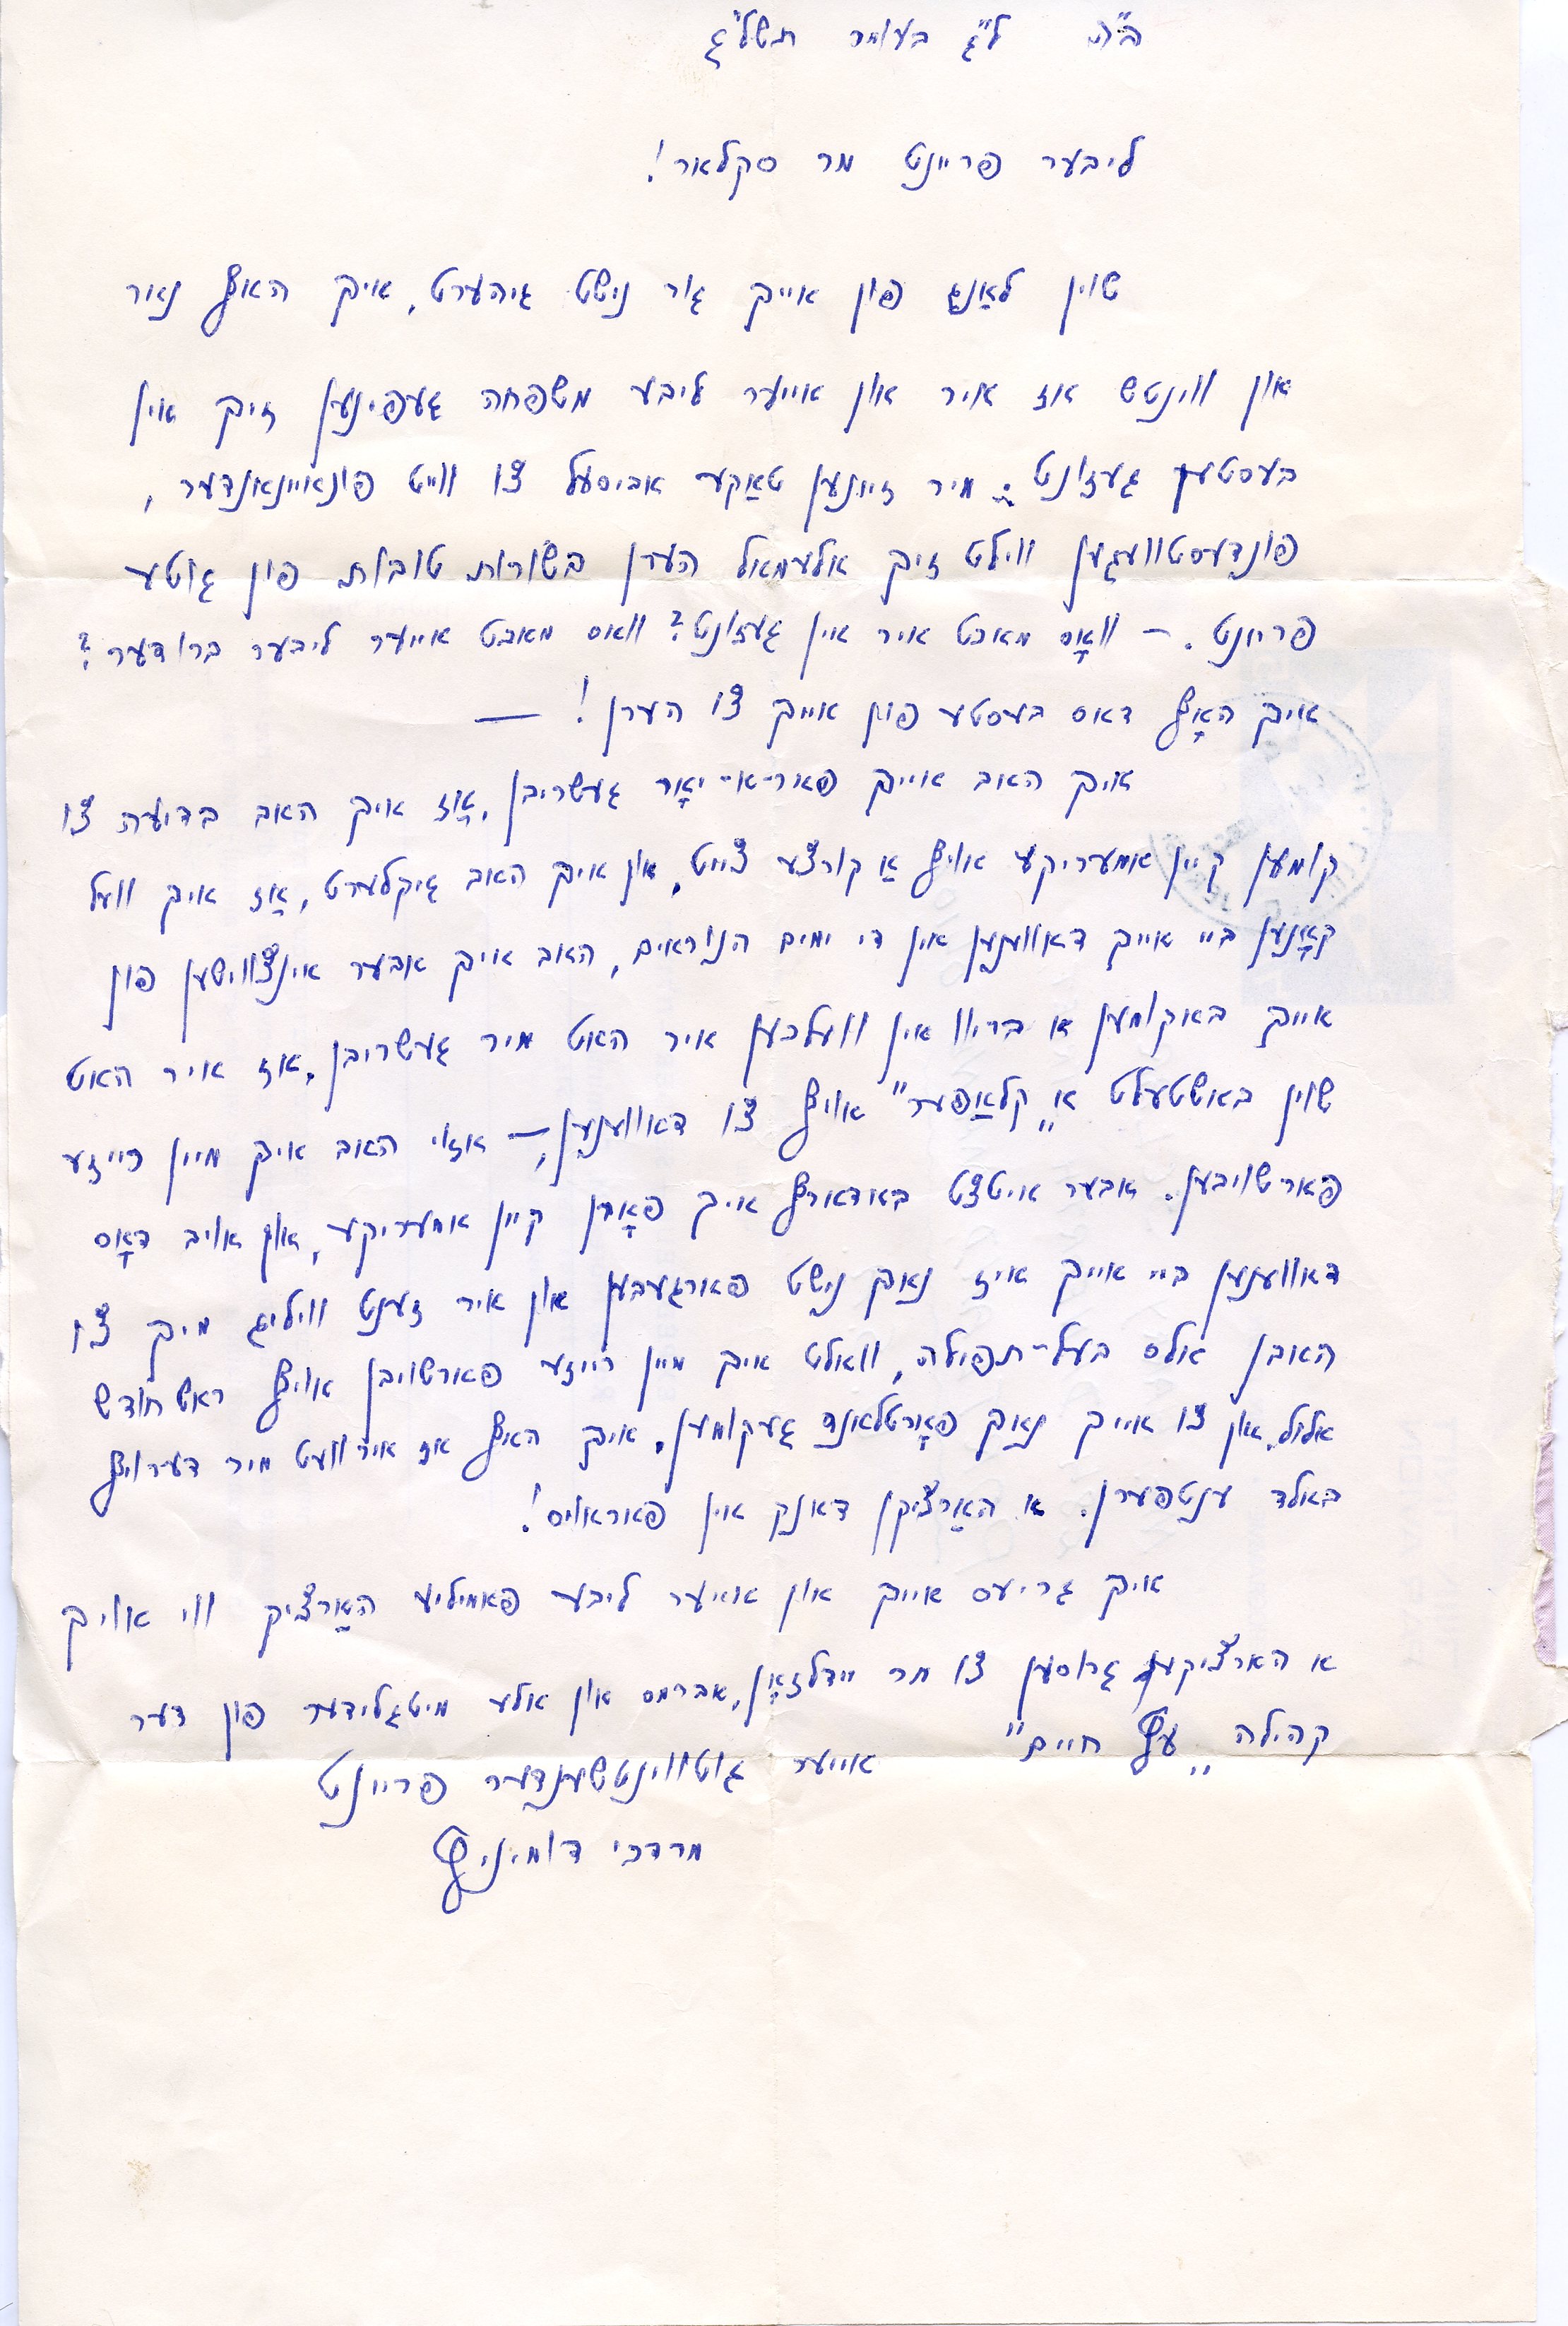 ב"ה ל"ג בעומר תשל"ג
ליבער פריינט מר סקלאר!
שוין לאַנג פון אייך גור נישט גיהערט, איך האף נאור
און ווינטש אז איר און אייער ליבע משפחה געפינען זיך אין
בעסטען געזונט. מיר זיינען טאַקע אביסעל צו ווייט פונאויינאנדער,
פונדעסטוועגען ווילט זיך אלעמאל הערן בשורות טובות פון גוטע
פריונט. — וואָס מאכט איר אין געזונט? וואס מאכט אייער ליבער ברודער?
איך האָף דאס בעסטע פון אייך צו הערן! —
איך האב אייך פאר-א-יאָר געשריבן, אַז איך האב בדיעה צו
קומען קיין אמעריקע אויף אַ קורצע צייט, און איך האב גיקלערט, אַז איך וועל
קאָנען ביי אייך דאווענען אין די ימים הנוראים, האב איך אבער אינצווישען פון
אייך באקומען א בריוו אין וועלכען איר האט מיר געשריבן, אז איר האט
שוין באשטעלט א „קלאַפער" אויף צו דאווענען, — אזוי האב איך מיין רייזע
פארשויבען. אבער איטצט באדארף איך פאָרן קיין אמעריקע, און אויב דאָס
דאווענען ביי אייך איז נאך נישט פארגעבען און איר זענט וויליג מיך צו
האבן אלס בעל-תפילה, וואלט איך מיין רייזע פארשויבן אויף ראש חודש
אלול, און צו אייך נאך פאָרטלאנד געקומען, איך האף אז איר וועט מיר דערויף
באלד ענטפערן. א האַרציקן דאנק אין פאראויס!
איך גריעס אייך און אייער ליבע פאמיליע האַרציק ווי אויך
א הארציקען גרוסען צו מר יידלזאָן, אברמס און אלע מיטגלידער פון דער
קהילה „עץ חיים" אייער גוטווינטשענדער פריינט
מרדכי דומיניץ